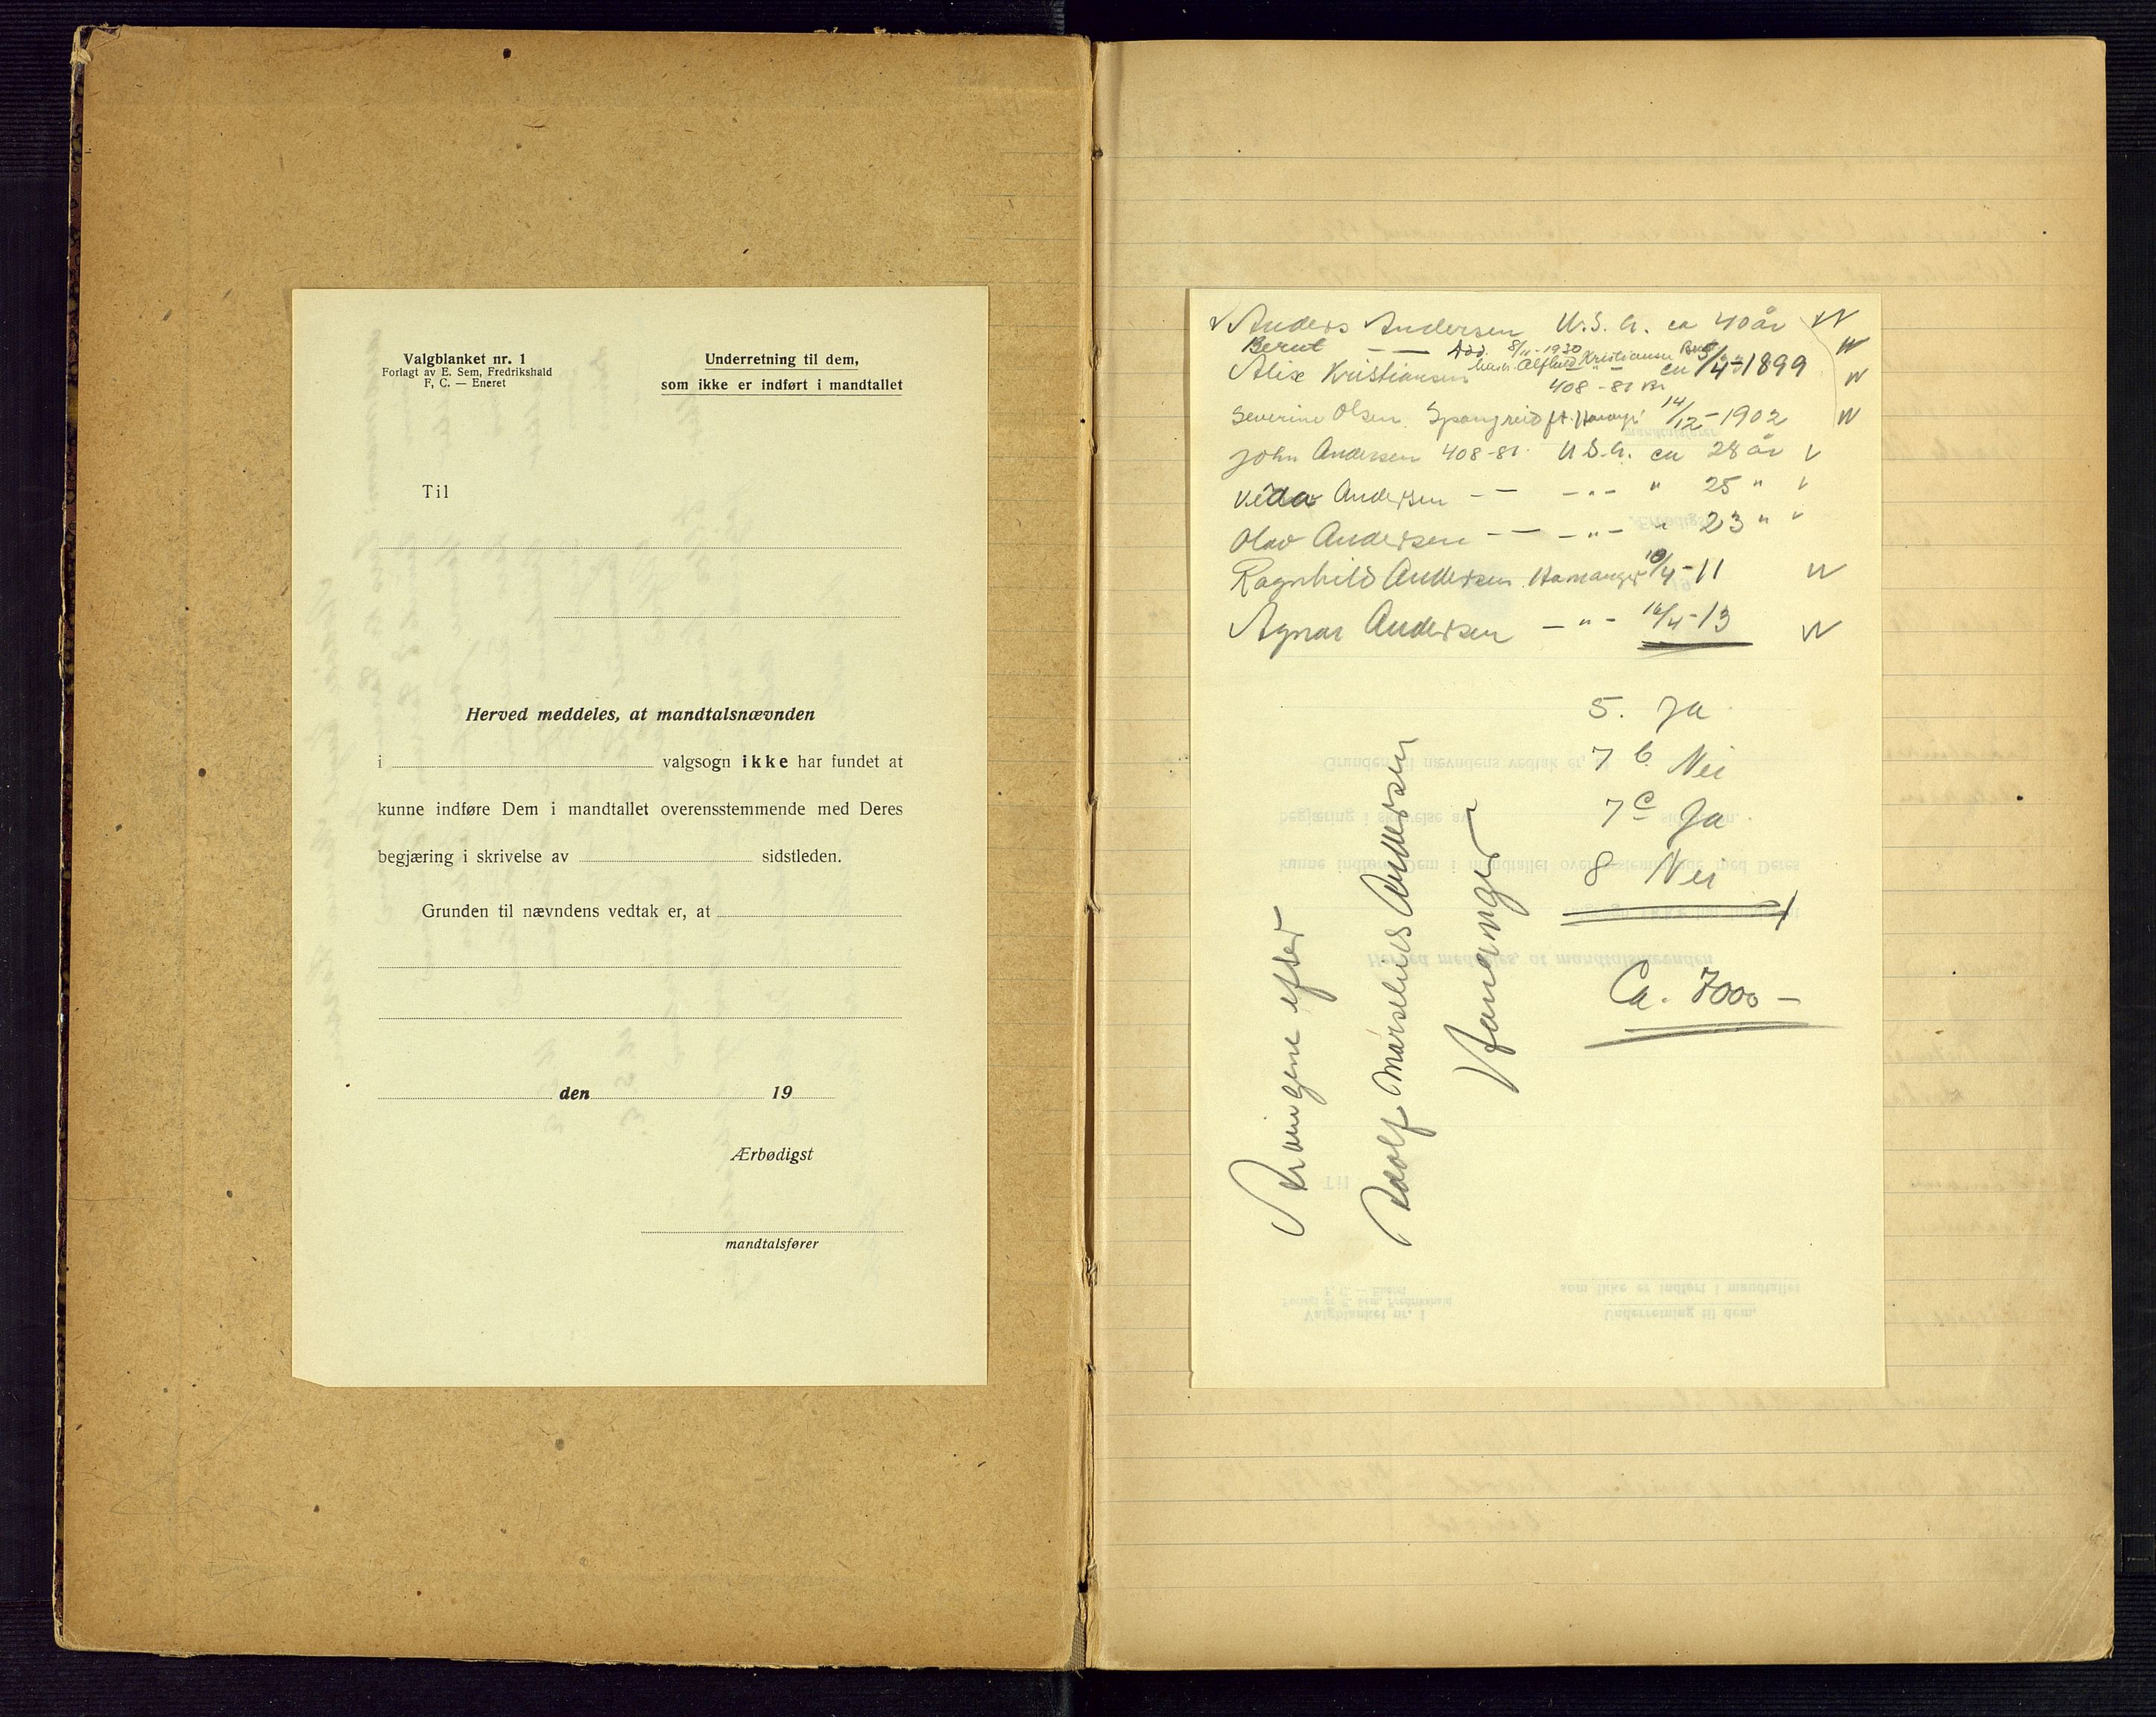 Valgblanket nr. 1
Forlagt av E. Sem, Fredrikshald
F, C. — Eneret
Underretning til dem,
som ikke er indført i mandtallet
Til
Herved meddeles, at mandtalsnævnden
i valgsogn ikke har fundet at
kunne indføre Dem i mandtallet overensstemmende med Deres
begjæring i skrivelse av sidstleden.
Grunden til nævndens vedtak er, at
den 19
Ærbødigst
mandtalsfører
Anders Andersen U.S.A. ca 40 år
Berut — død 8/11-1930
Alfhild Kristiansen
Alex Kristiansen 5/4-1899
408-81
Severine Olsen Spangreid 14/12-1902
John Andersen 408-81 U.S.A. ca 28 år
Andersen — — - " - " 25 "
Olav Andersen — — - " - " 23 "
Ragnhild Andersen Hamanger 10/4-11
Agnar Andersen - " - 16/4-13
5. Ja
7 b. Nei
7 c Ja
8 Nei
Ca. 7000 —
efter
Adolf Marselius Andersen
Hananger